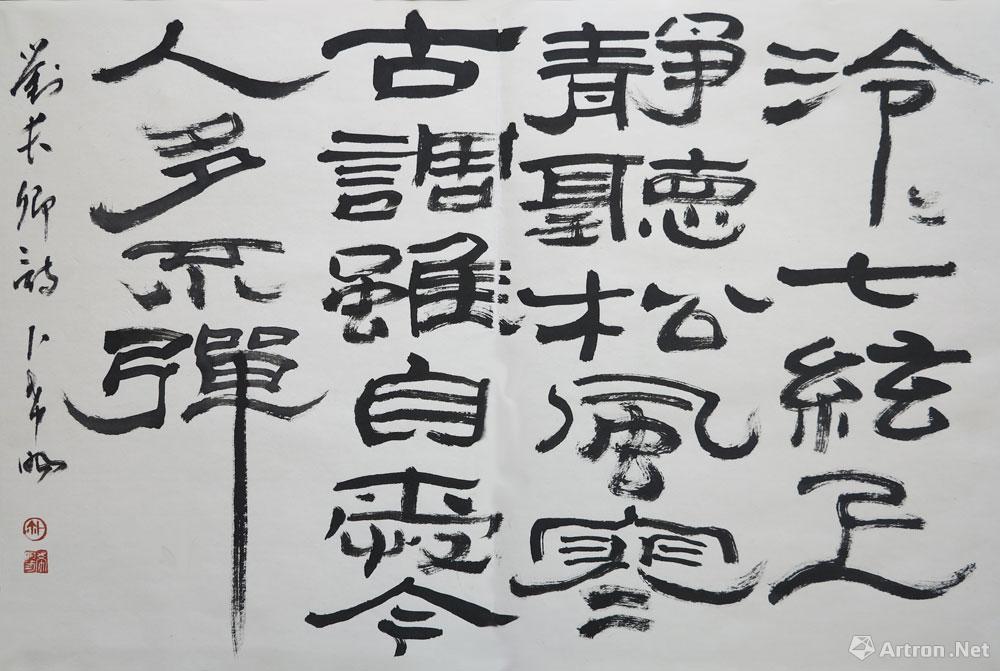 泠〻七絃上
靜聽松風寒
古調雖自愛今
人多不彈
劉長卿詩 卜希暘
Artron.Net